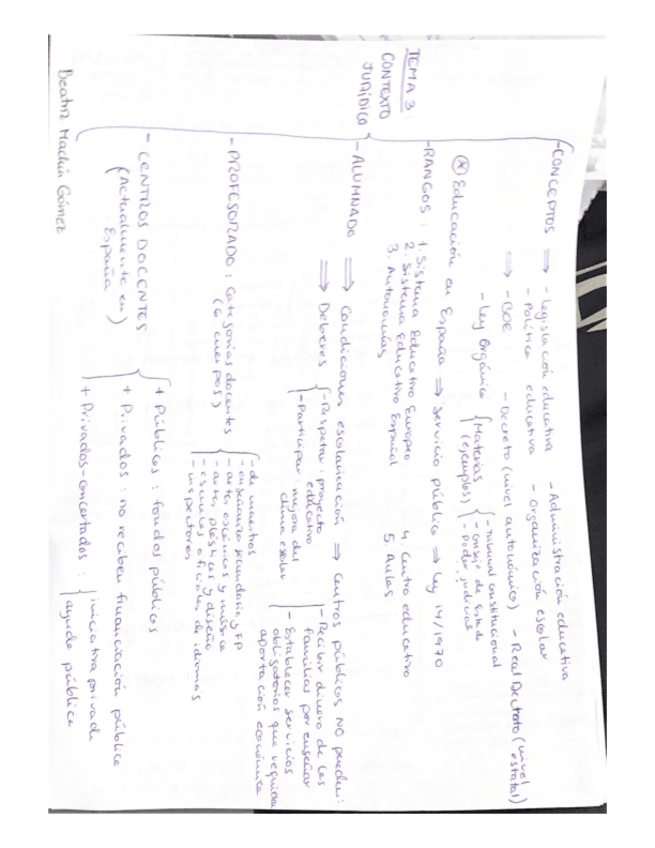 TEMA 3
CONTEXTO
JURÍDICO
- CONCEPTOS ⟹ - Legislación educativa - Administración educativa
- Política educativa - Organización escolar
⟹ - BOE - Decreto (nivel autonómico) - Real Decreto (nivel estatal)
- Ley Orgánica { Materias (ejemplos) { - Tribunal constitucional
- Consejo de Estado
- Poder judicial
...
(*) Educación en España ⟹ servicio público ⟹ Ley 14/1970
- RANGOS : 1. Sistema Educativo Europeo 4. Centro educativo
2. Sistema Educativo Español 5. Aulas
3. Autonomías
- ALUMNADO ⟹ Condiciones escolarización ⟹ Centros públicos NO pueden:
- Recibir dinero de las
familias por enseñar
- Establecer servicios
obligatorios que requieran
aportación económica
⟹ Deberes { - Respetar : proyecto
educativo
- Participar : mejora del
clima escolar
- PROFESORADO : Categorías docentes
(6 cuerpos)
- de maestros
- enseñanza secundaria y FP
- artes escénicas y música
- artes plásticas y diseño
- escuelas oficiales de idiomas
- inspectores
- CENTROS DOCENTES :
(Actualmente en
España)
+ Públicos : fondos públicos
+ Privados : no reciben financiación pública
+ Privados-concertados : { iniciativa privada
ayuda pública
Beatriz Machín Gómez